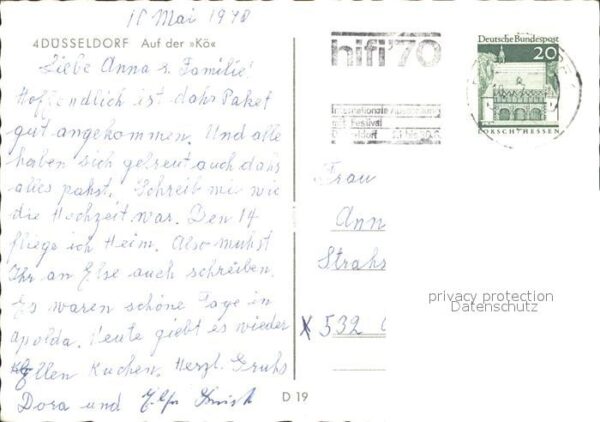 11 Mai 1970
4 DÜSSELDORF Auf der »Kö«
Liebe Anna u. Familie!
Hoffendlich ist dahs Paket
gut angekommen. Und alle
haben sich gefreut auch dahs
alles pahst. Schreib mir wie
die Hochzeit war. Den 14
fliege ich Heim. Also muhst
Ihr an Else auch schreiben.
Es waren schöne Tage in
Apolda. Heute giebt es wieder
Ellen Kuchen. Herzl. Gruhs
Dora und
D 19
hifi '70
Internationale Ausstellung
mit Festival
Düsseldorf
Deutsche Bundespost
20
LORSCH/HESSEN
Frau
Ann
Strahs
x 532
privacy protection
Datenschutz